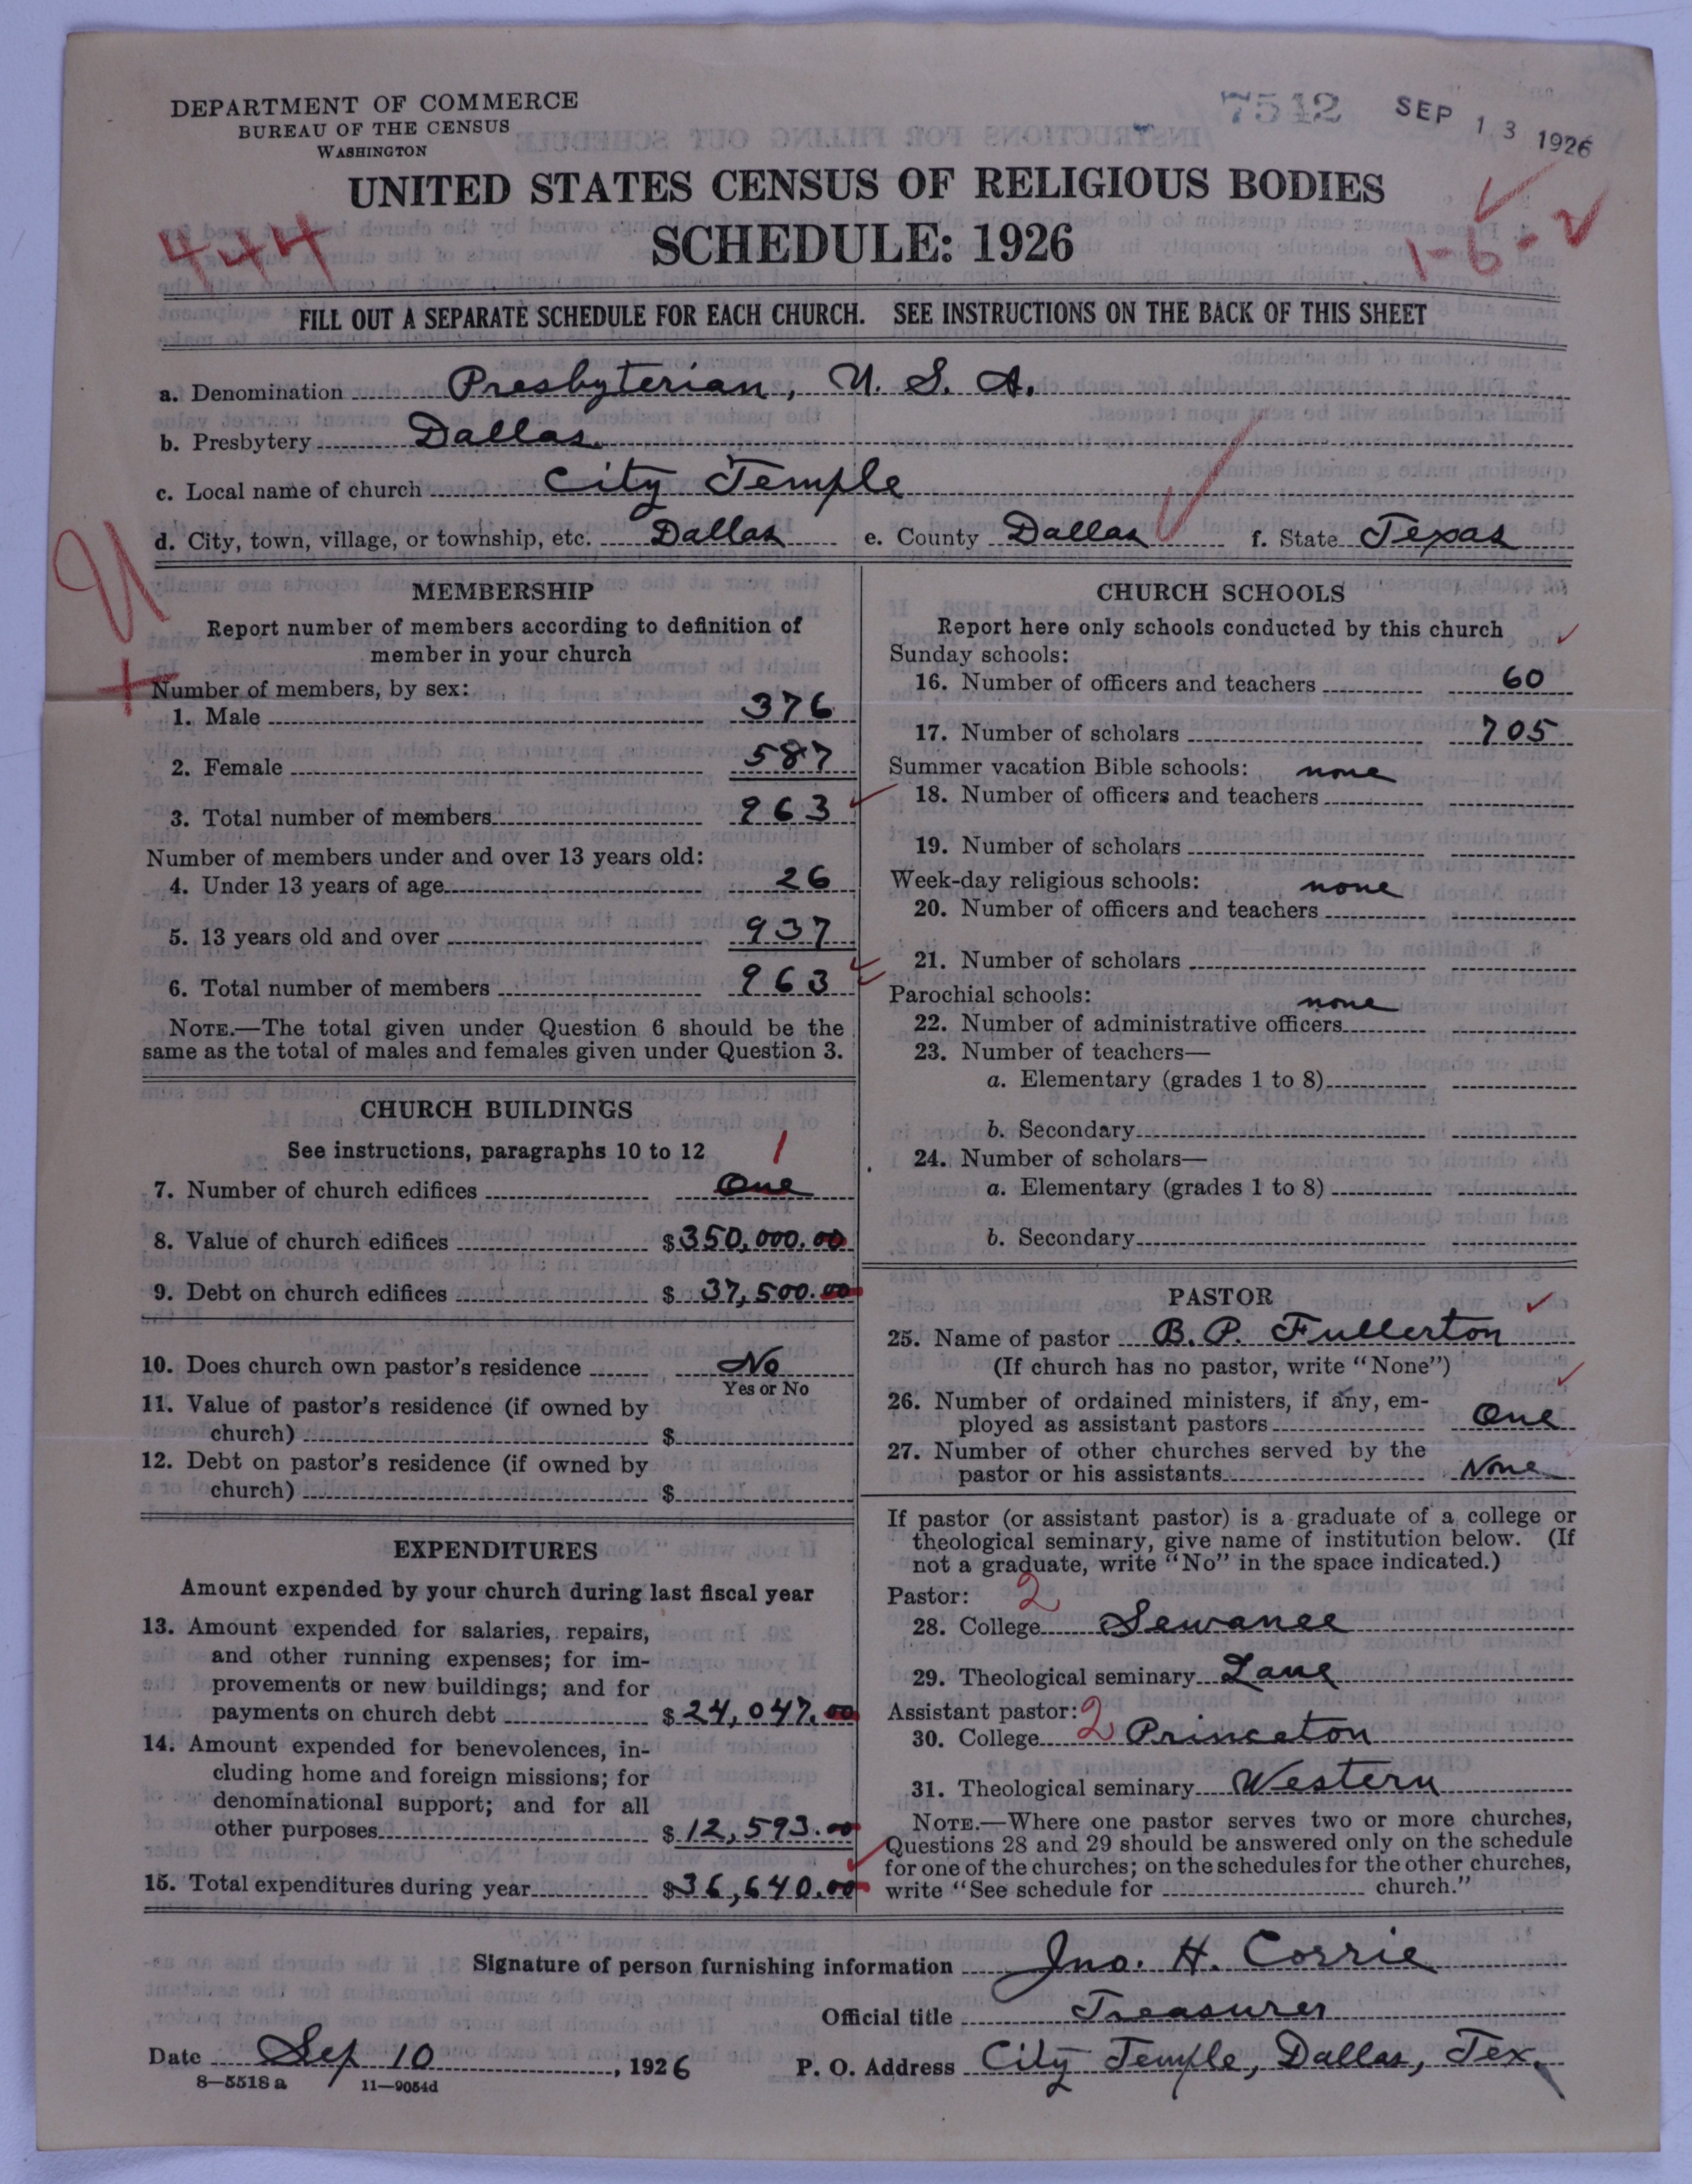 DEPARTMENT OF COMMERCE
BUREAU OF THE CENSUS
WASHINGTON
7542 SEP 13 1926
UNITED STATES CENSUS OF RELIGIOUS BODIES
SCHEDULE: 1926
444
1-6-2
FILL OUT A SEPARATE SCHEDULE FOR EACH CHURCH. SEE INSTRUCTIONS ON THE BACK OF THIS SHEET
a. Denomination Presbyterian, U. S. A.
b. Presbytery Dallas
c. Local name of church City Temple
d. City, town, village, or township, etc. Dallas e. County Dallas f. State Texas
U
MEMBERSHIP
Report number of members according to definition of
member in your church
Number of members, by sex:
1. Male 376
2. Female 587
3. Total number of members 963
Number of members under and over 13 years old:
4. Under 13 years of age 26
5. 13 years old and over 937
6. Total number of members 963
NOTE.—The total given under Question 6 should be the
same as the total of males and females given under Question 3.
CHURCH BUILDINGS
See instructions, paragraphs 10 to 12
1
7. Number of church edifices One
8. Value of church edifices $350,000.00
9. Debt on church edifices $ 37,500.00
10. Does church own pastor's residence No
Yes or No
11. Value of pastor's residence (if owned by
church) $
12. Debt on pastor's residence (if owned by
church) $
EXPENDITURES
Amount expended by your church during last fiscal year
13. Amount expended for salaries, repairs,
and other running expenses; for im-
provements or new buildings; and for
payments on church debt $24,047.00
14. Amount expended for benevolences, in-
cluding home and foreign missions; for
denominational support; and for all
other purposes $12,593.00
15. Total expenditures during year $36,640.00
CHURCH SCHOOLS
Report here only schools conducted by this church
Sunday schools:
16. Number of officers and teachers 60
17. Number of scholars 705
Summer vacation Bible schools: none
18. Number of officers and teachers
19. Number of scholars
Week-day religious schools: none
20. Number of officers and teachers
21. Number of scholars
Parochial schools: none
22. Number of administrative officers
23. Number of teachers—
a. Elementary (grades 1 to 8)
b. Secondary
24. Number of scholars—
a. Elementary (grades 1 to 8)
b. Secondary
PASTOR
25. Name of pastor B. P. Fullerton
(If church has no pastor, write "None")
26. Number of ordained ministers, if any, em-
ployed as assistant pastors One
27. Number of other churches served by the
pastor or his assistants None
If pastor (or assistant pastor) is a graduate of a college or
theological seminary, give name of institution below. (If
not a graduate, write "No" in the space indicated.)
Pastor: 2
28. College Sewanee
29. Theological seminary Lane
Assistant pastor: 2
30. College Princeton
31. Theological seminary Western
NOTE.—Where one pastor serves two or more churches,
Questions 28 and 29 should be answered only on the schedule
for one of the churches; on the schedules for the other churches,
write "See schedule for church."
Signature of person furnishing information Jno. H. Corrie
Official title Treasurer
Date Sep 10, 1926 P. O. Address City Temple, Dallas, Tex.
8—5518a 11—9054d